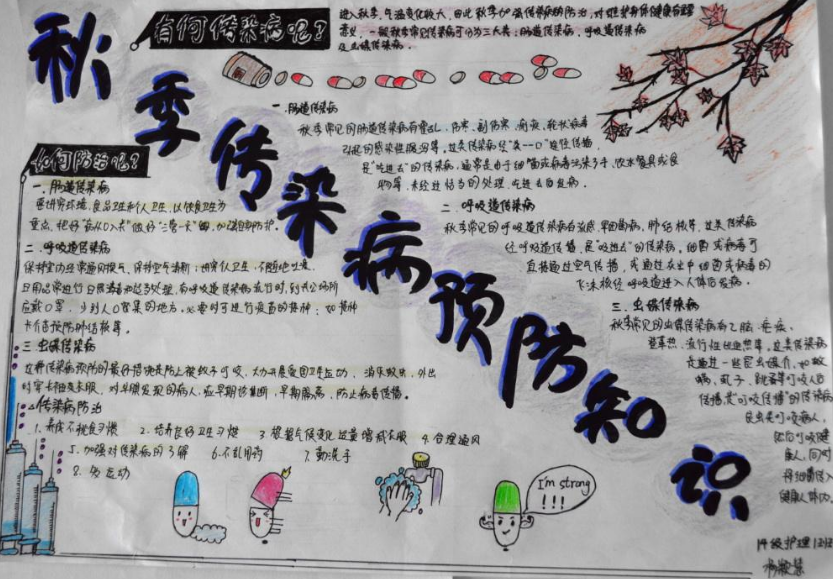 秋季传染病预防知识
有何传染病呢？
进入秋季，气温变化较大，因此秋季加强传染病的防治，对维护身体健康有重要
意义，一般秋季常见传染病可分为三大类：肠道传染病，呼吸道传染病
及虫媒传染病。
一.肠道传染病
秋季常见的肠道传染病有霍乱、伤寒、副伤寒、痢疾、轮状病毒
引起的感染性腹泻等，这类传染病经“粪—口”途径传播，
是“吃进去”的传染病，通常是由于细菌或病毒污染了手、饮水餐具或食
物等，未经过恰当的处理，吃进去后发病。
二.呼吸道传染病
秋季常见的呼吸道传染病有流感、肺结核等，这类传染病
经呼吸道传播，是“吸进去”的传染病，细菌或病毒可
直接通过空气传播，或通过
飞沫被经呼吸道进入人体后发病。
三.虫媒传染病
秋季常见的虫媒传染病有乙脑、疟疾、
登革热、流行性出血热等，这类传染病
是通过一些昆虫媒介，如蚊
虱子、跳蚤等叮咬人的
传播，是“叮咬传播”的传染病
昆虫类叮咬病人，
然后叮咬健
康人，同时
将细菌传入
健康人体内
如何防治呢？
一.肠道传染病
要讲究环境、食品卫生和个人卫生，以饮食卫生为
重点，把好“病从口入”做好“三管一灭”
二.呼吸道传染病
保持室内经常通风换气，保持空气清新；讲究个人卫生，不随地吐痰，
日用品常进行日照有呼吸道传染病流行时，到公共场所
应戴口罩，少到人口密集的地方，必要时可进行疫苗的接种，如接种
卡介苗预防肺结核等。
三.虫媒传染病
这种传染病预防的最好措施是防止被蚊子叮咬，大力开展爱国卫生运动，消灭蚊虫，外出
时穿长袖长衣服，对早期发现的病人，应早期诊断，早期隔离，防止病毒传播。
传染病防治
1.养成不挑食习惯 2.培养良好卫生习惯 3.根据气候变化适量增减衣服 4.合理通风
5.加强对传染病的了解 6.不乱用药 7.勤洗手
8.多运动
I'm strong
!!!
护理